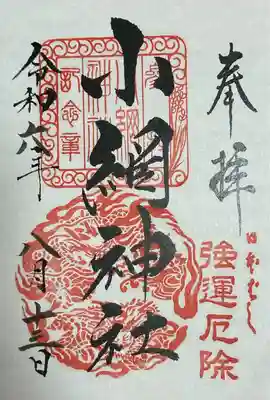 奉拝
日本ばし
強運厄除
小網神社
令和六年
八月十三日